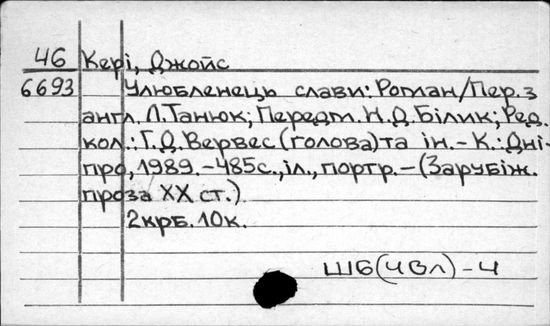 46 Кері, Джойс
6693 Улюбленець слави: Роман/Пер. з
англ. Л.Танюк; Передм. Н.Д.Білик; Ред.
кол.: Г.Д.Вервес (голова) та ін. – К.: Дні-
про, 1989. – 485с., іл., портр. – (Зарубіж.
проза XX ст.)
2крб. 10к.
ШБ(4Вл) – 4